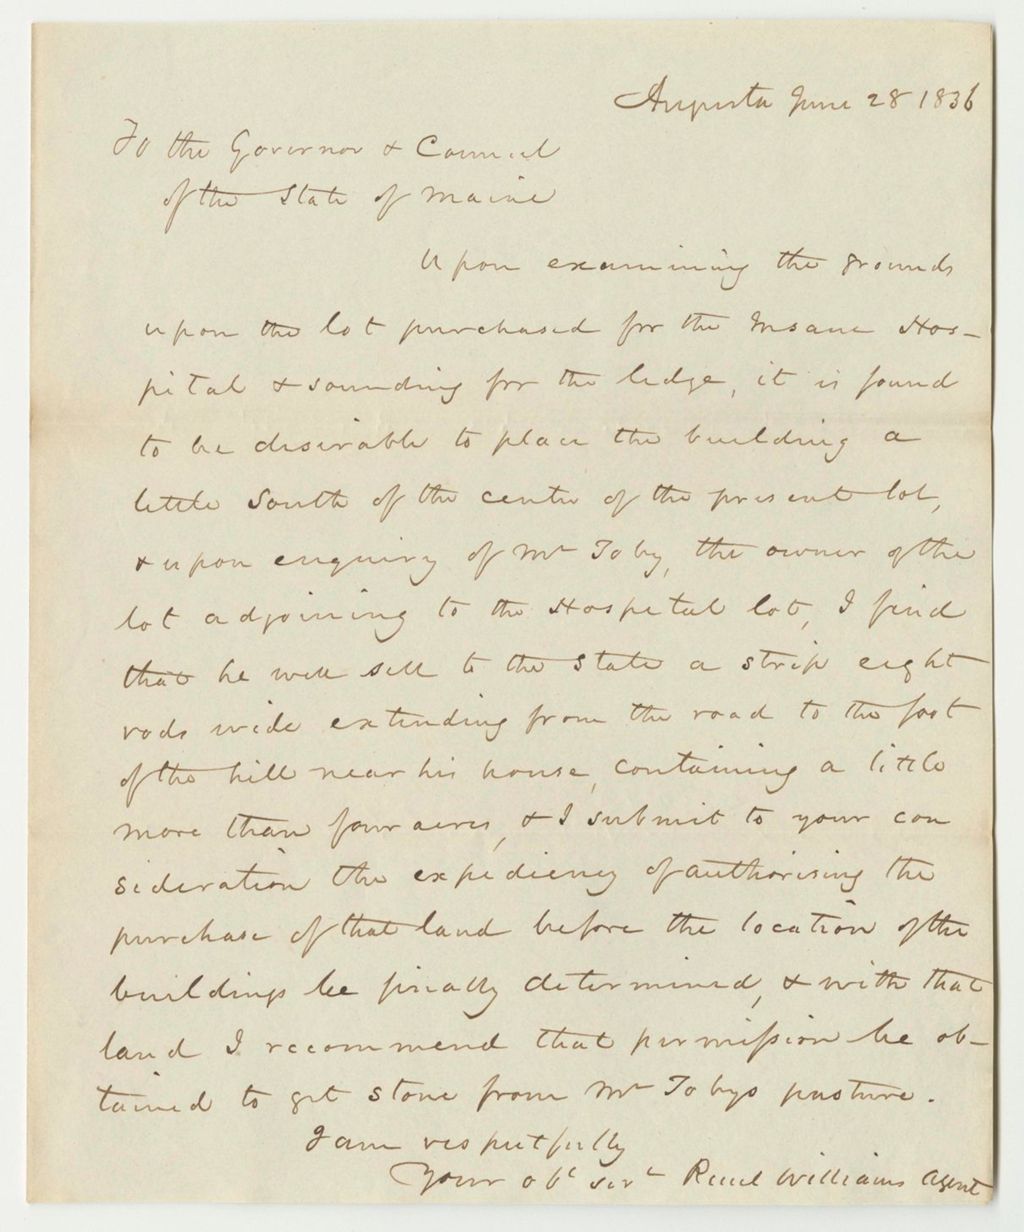 Augusta June 28 1836
To the Governor & Council
of the State of Maine
Upon examining the grounds
upon the lot purchased for the Insane Hos-
pital & sounding for the ledge, it is found
to be desirable to place the building a
little South of the centre of the present lot,
& upon enquiry of Mr Toby, the owner of the
lot adjoining to the Hospital lot, I find
that he will sell to the State a strip eight
rods wide extending from the road to the foot
of the hill near his house, containing a little
more than four acres, & I submit to your con
sideration the expediency of authorising the
purchase of that land before the location of the
buildings be finally determined, & with that
land I recommend that permission be ob-
tained to get stone from Mr Tobys pasture.
I am respectfully
Your obt servt Reuel Williams Agent